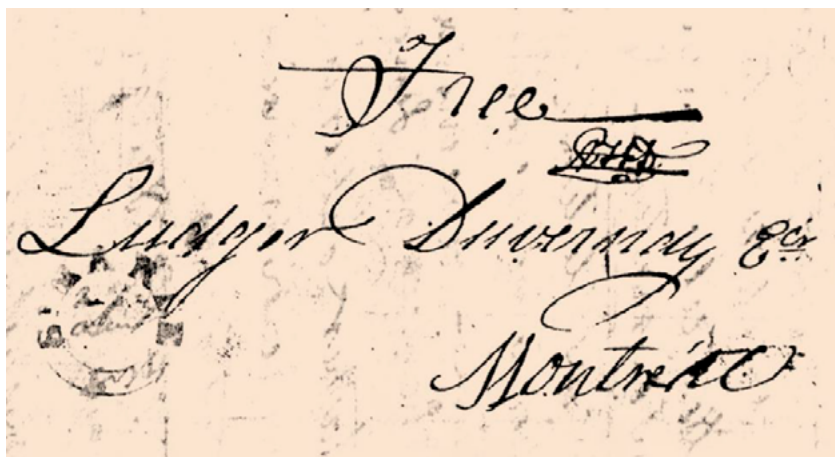 Free
Ludger Duvernay Ecr
Montréal